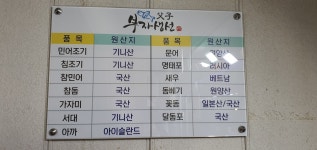 父子
부자생선
품목 원산지 품목 원산지
민어조기 기니산 문어
침조기 기니산 명태포 러시아
참민어 국산 새우 베트남
참돔 국산 돔베기 원양산
가자미 국산 꽃돔 일본산/국산
서대 기니산 달돔포 국산
아까 아이슬란드